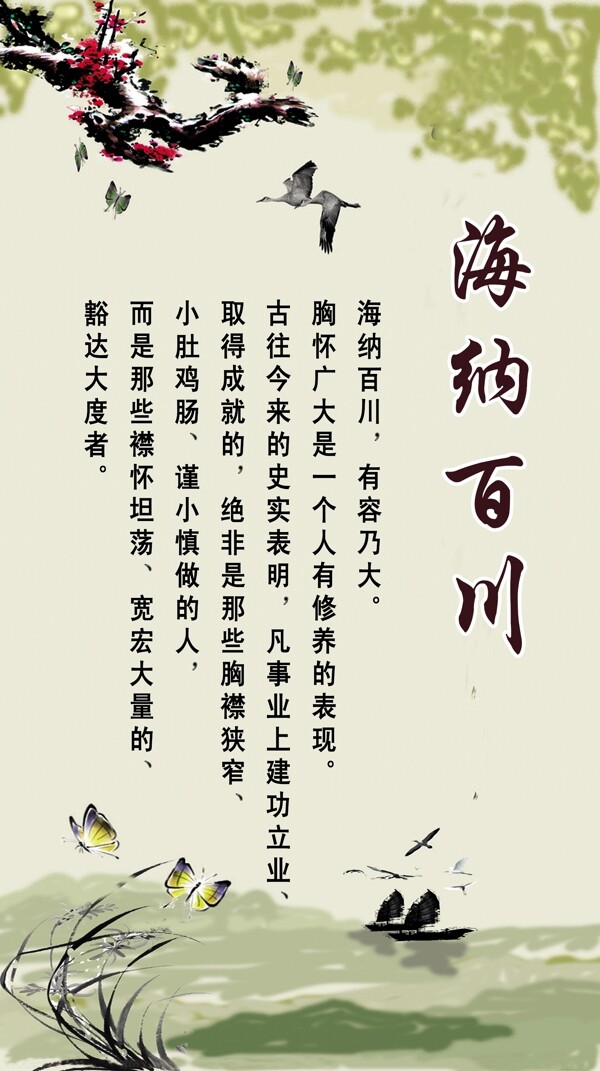 海纳百川
海纳百川，有容乃大。
胸怀广大是一个人有修养的表现。
古往今来的史实表明，凡事业上建功立业、
取得成就的，绝非是那些胸襟狭窄、
小肚鸡肠、谨小慎做的人，
而是那些襟怀坦荡、宽宏大量的、
豁达大度者。